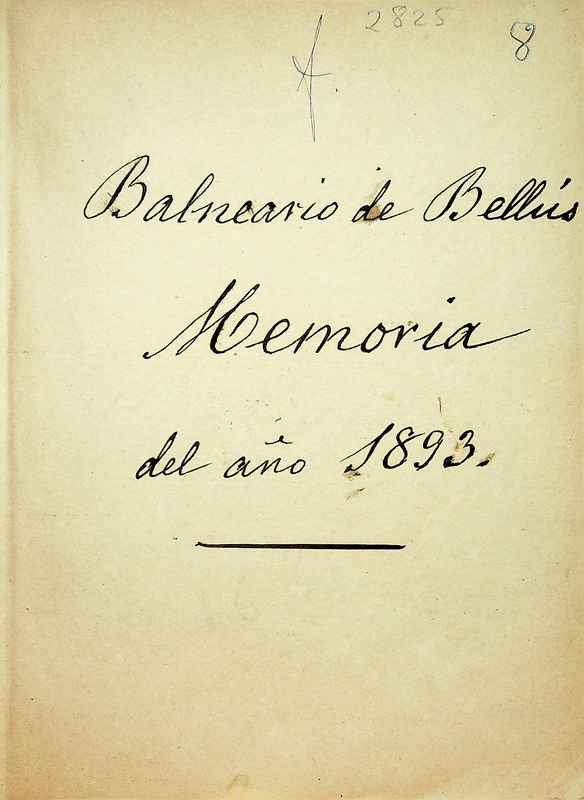 2825
8
Balneario de Bellús
Memoria
del año 1893.